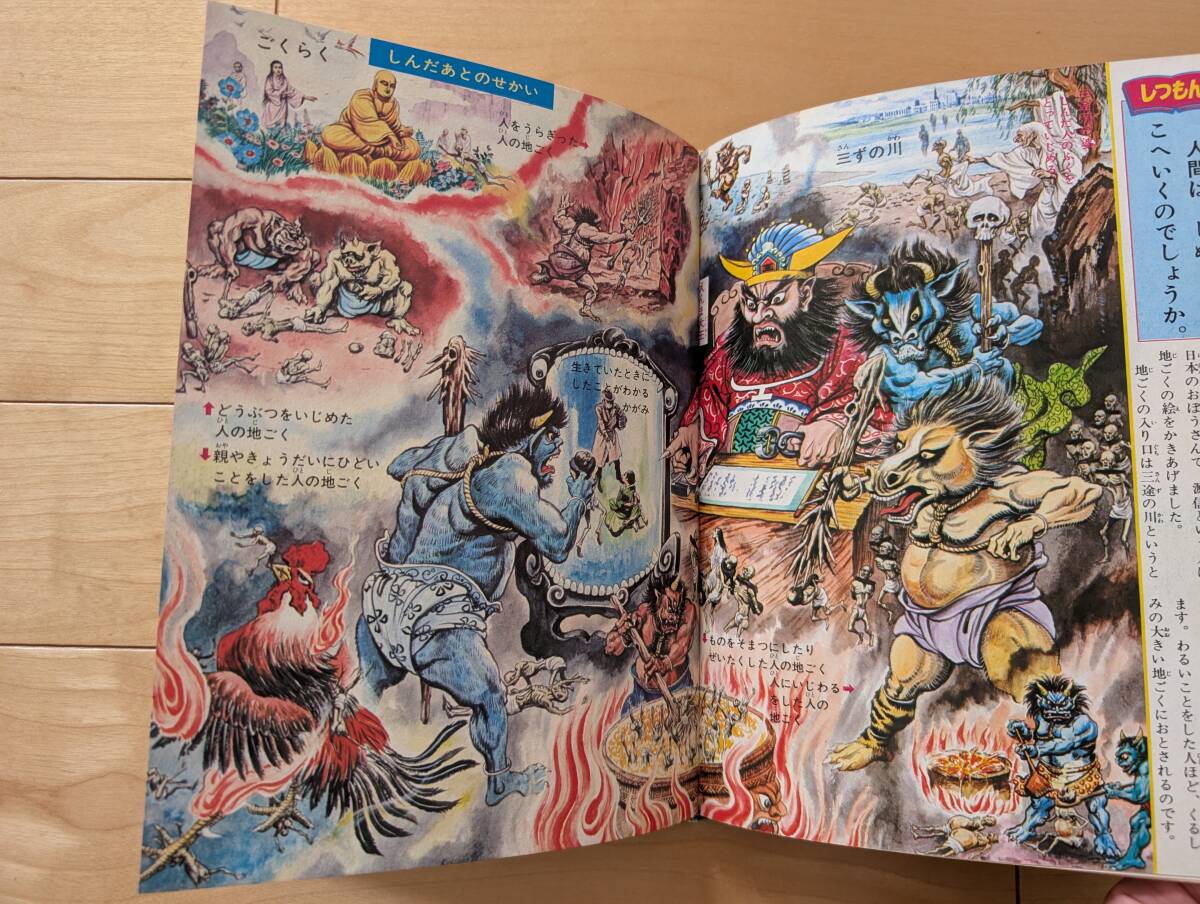 ごくらく
しんだあとのせかい
人をうらぎった
人の地ごく
どうぶつをいじめた
人の地ごく
親やきょうだいにひどい
ことをした人の地ごく
生きていたときに
したことがわかる
かがみ
三ずの川
ものをそまつにしたり
ぜいたくした人の地ごく
人にいじわる
をした人の
地ごく
しつもん
人間は
こへいくのでしょうか。
日本のおぼうさんで
地ごくの絵をかきあげました。
地ごくの入り口は三途の川というと
ます。わるいことをした人ほど、くるし
みの大きい地ごくにおとされるのです。